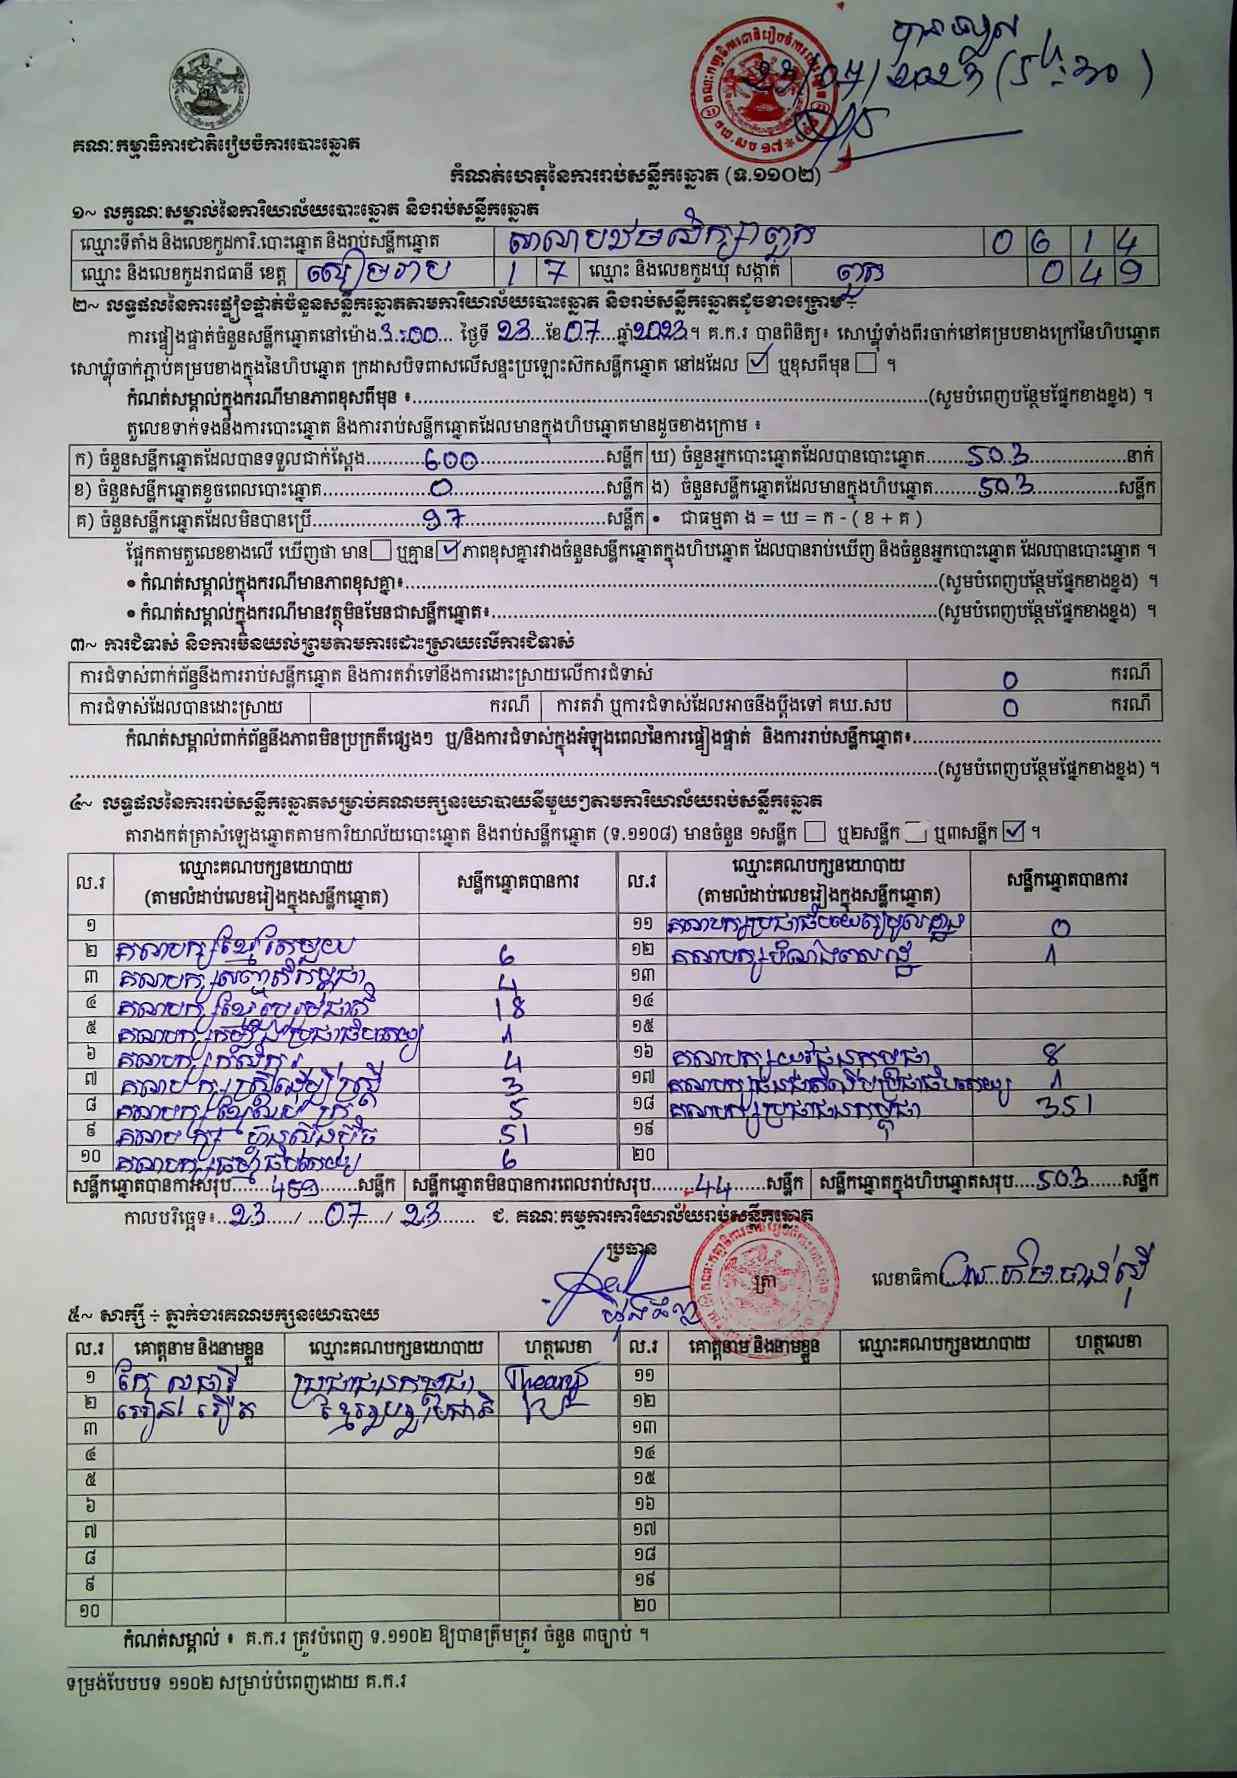 បានទទួល
២៣/០៧/២០២៣
គណៈកម្មាធិការជាតិរៀបចំការបោះឆ្នោត
កំណត់ហេតុនៃការរាប់សន្លឹកឆ្នោត (ទ.១១០២)
១~ លក្ខណៈសម្គាល់នៃការិយាល័យបោះឆ្នោត និងរាប់សន្លឹកឆ្នោត
ឈ្មោះទីតាំង និងលេខកូដការិ.បោះឆ្នោត និងរាប់សន្លឹកឆ្នោត សាលាបឋមសិក្សាពួក 0 6 1 4
ឈ្មោះ និងលេខកូដរាជធានី ខេត្ត សៀមរាប 1 7 ឈ្មោះ និងលេខកូដឃុំ សង្កាត់ ពួក 0 4 9
២~ លទ្ធផលនៃការផ្ទៀងផ្ទាត់ចំនួនសន្លឹកឆ្នោតតាមការិយាល័យបោះឆ្នោត និងរាប់សន្លឹកឆ្នោតដូចខាងក្រោម ÷
ការផ្ទៀងផ្ទាត់ចំនួនសន្លឹកឆ្នោតនៅម៉ោង 3:00 ថ្ងៃទី 23 ខែ 07 ឆ្នាំ 2023។ គ.ក.រ បានពិនិត្យ៖ សោឃ្លុំទាំងពីរចាក់នៅគម្របខាងក្រៅនៃហិបឆ្នោត
សោឃ្លុំចាក់ភ្ជាប់គម្របខាងក្នុងនៃហិបឆ្នោត ក្រដាសបិទពាសលើសន្ទះប្រឡោះស៊កសន្លឹកឆ្នោត នៅដដែល ☑ ឬខុសពីមុន ☐ ។
កំណត់សម្គាល់ក្នុងករណីមានភាពខុសពីមុន ៖ (សូមបំពេញបន្ថែមផ្នែកខាងខ្នង) ។
តួលេខទាក់ទងនឹងការបោះឆ្នោត និងការរាប់សន្លឹកឆ្នោតដែលមានក្នុងហិបឆ្នោតមានដូចខាងក្រោម ៖
ក) ចំនួនសន្លឹកឆ្នោតដែលបានទទួលជាក់ស្តែង 600 សន្លឹក ឃ) ចំនួនអ្នកបោះឆ្នោតដែលបានបោះឆ្នោត 503 នាក់
ខ) ចំនួនសន្លឹកឆ្នោតខូចពេលបោះឆ្នោត 0 សន្លឹក ង) ចំនួនសន្លឹកឆ្នោតដែលមានក្នុងហិបឆ្នោត 503 សន្លឹក
គ) ចំនួនសន្លឹកឆ្នោតដែលមិនបានប្រើ 97 សន្លឹក • ជាធម្មតា ង = ឃ = ក - ( ខ + គ )
ផ្អែកតាមតួលេខខាងលើ ឃើញថា មាន ☐ ឬគ្មាន ☑ ភាពខុសគ្នារវាងចំនួនសន្លឹកឆ្នោតក្នុងហិបឆ្នោត ដែលបានរាប់ឃើញ និងចំនួនអ្នកបោះឆ្នោត ដែលបានបោះឆ្នោត ។
• កំណត់សម្គាល់ក្នុងករណីមានភាពខុសគ្នា៖ (សូមបំពេញបន្ថែមផ្នែកខាងខ្នង) ។
• កំណត់សម្គាល់ក្នុងករណីមានវត្ថុមិនមែនជាសន្លឹកឆ្នោត៖ (សូមបំពេញបន្ថែមផ្នែកខាងខ្នង) ។
៣~ ការជំទាស់ និងការមិនយល់ព្រមតាមការដោះស្រាយលើការជំទាស់
ការជំទាស់ពាក់ព័ន្ធនឹងការរាប់សន្លឹកឆ្នោត និងការតវ៉ាទៅនឹងការដោះស្រាយលើការជំទាស់ 0 ករណី
ការជំទាស់ដែលបានដោះស្រាយ ករណី ការតវ៉ា ឬការជំទាស់ដែលអាចនឹងប្តឹងទៅ គឃ.សប 0 ករណី
កំណត់សម្គាល់ពាក់ព័ន្ធនឹងភាពមិនប្រក្រតីផ្សេងៗ ឬ/និងការជំទាស់ក្នុងអំឡុងពេលនៃការផ្ទៀងផ្ទាត់ និងការរាប់សន្លឹកឆ្នោត៖
(សូមបំពេញបន្ថែមផ្នែកខាងខ្នង) ។
៤~ លទ្ធផលនៃការរាប់សន្លឹកឆ្នោតសម្រាប់គណបក្សនយោបាយនីមួយៗតាមការិយាល័យរាប់សន្លឹកឆ្នោត
តារាងកត់ត្រាសំឡេងឆ្នោតតាមការិយាល័យបោះឆ្នោត និងរាប់សន្លឹកឆ្នោត (ទ.១១០៨) មានចំនួន ១សន្លឹក ☐ ឬ២សន្លឹក ☐ ឬ៣សន្លឹក ☑ ។
ល.រ ឈ្មោះគណបក្សនយោបាយ (តាមលំដាប់លេខរៀងក្នុងសន្លឹកឆ្នោត) សន្លឹកឆ្នោតបានការ ល.រ ឈ្មោះគណបក្សនយោបាយ (តាមលំដាប់លេខរៀងក្នុងសន្លឹកឆ្នោត) សន្លឹកឆ្នោតបានការ
១ ១១ គណបក្សប្រជាធិបតេយ្យមូលដ្ឋាន 0
២ គណបក្សខ្មែរតែមួយ 6 ១២ គណបក្សបំណងពលរដ្ឋ 1
៣ គណបក្សសញ្ជាតិកម្ពុជា 4 ១៣
៤ គណបក្សខ្មែររួបរួមជាតិ 18 ១៤
៥ គណបក្សកម្លាំងប្រជាធិបតេយ្យ 1 ១៥
៦ គណបក្សកសិករ 4 ១៦ គណបក្សយុវជនកម្ពុជា 8
៧ គណបក្សស្ត្រីដើម្បីស្ត្រី 3 ១៧ គណបក្សជនជាតិដើមប្រជាធិបតេយ្យ 1
៨ គណបក្សខ្មែរអភិរក្ស 5 ១៨ គណបក្សប្រជាជនកម្ពុជា 351
៩ គណបក្សហ្វ៊ុនស៊ិនប៉ិច 51 ១៩
១០ គណបក្សធម្មាធិបតេយ្យ 6 ២០
សន្លឹកឆ្នោតបានការសរុប 459 សន្លឹក សន្លឹកឆ្នោតមិនបានការពេលរាប់សរុប 44 សន្លឹក សន្លឹកឆ្នោតក្នុងហិបឆ្នោតសរុប 503 សន្លឹក
កាលបរិច្ឆេទ៖ 23 / 07 / 23 ជ. គណៈកម្មការការិយាល័យរាប់សន្លឹកឆ្នោត
ប្រធាន
ត្រា
លេខាធិការ
៥~ សាក្សី ÷ ភ្នាក់ងារគណបក្សនយោបាយ
ល.រ គោត្តនាម និងនាមខ្លួន ឈ្មោះគណបក្សនយោបាយ ហត្ថលេខា ល.រ គោត្តនាម និងនាមខ្លួន ឈ្មោះគណបក្សនយោបាយ ហត្ថលេខា
១ កែ សុធារី ប្រជាជនកម្ពុជា Theary ១១
២ ខ្មែររួបរួមជាតិ ១២
៣ ១៣
៤ ១៤
៥ ១៥
៦ ១៦
៧ ១៧
៨ ១៨
៩ ១៩
១០ ២០
កំណត់សម្គាល់ ៖ គ.ក.រ ត្រូវបំពេញ ទ.១១០២ ឱ្យបានត្រឹមត្រូវ ចំនួន ៣ច្បាប់ ។
ទម្រង់បែបបទ ១១០២ សម្រាប់បំពេញដោយ គ.ក.រ